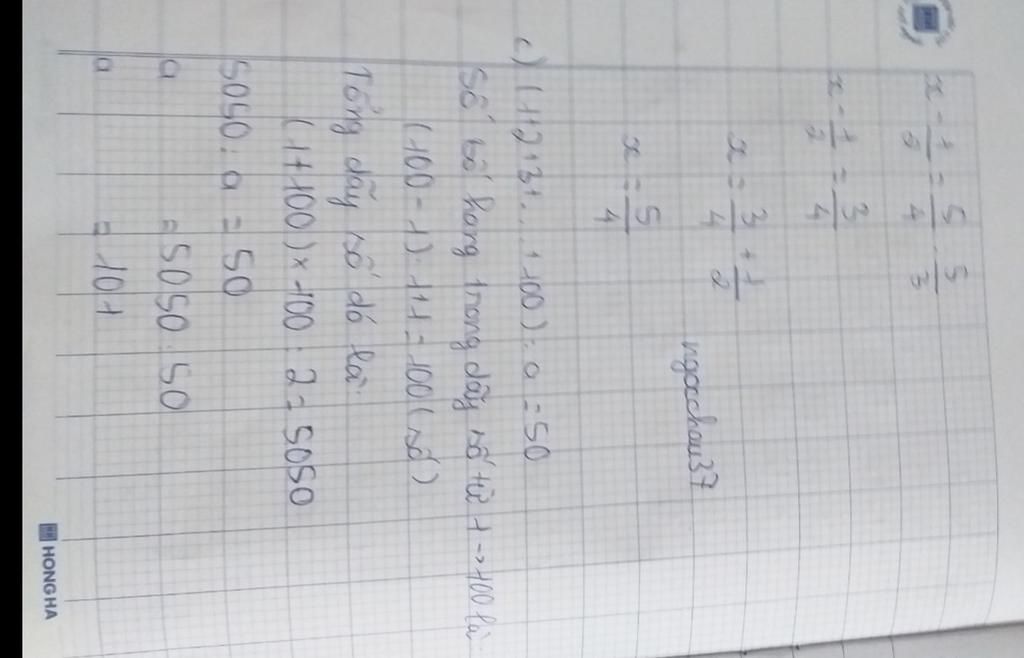 x - 1/2 = 5/4 : 5/3
x - 1/2 = 3/4
x = 3/4 + 1/2
x = 5/4
ngocchau37
c) (1+2+3+...+100) : a = 50
Số số hạng trong dãy số từ 1 → 100 là
(100 - 1) : 1+1 = 100 (số)
Tổng dãy số đó là:
(1+100) x 100 : 2 = 5050
5050 : a = 50
a = 5050 : 50
a = 101
HONG HA